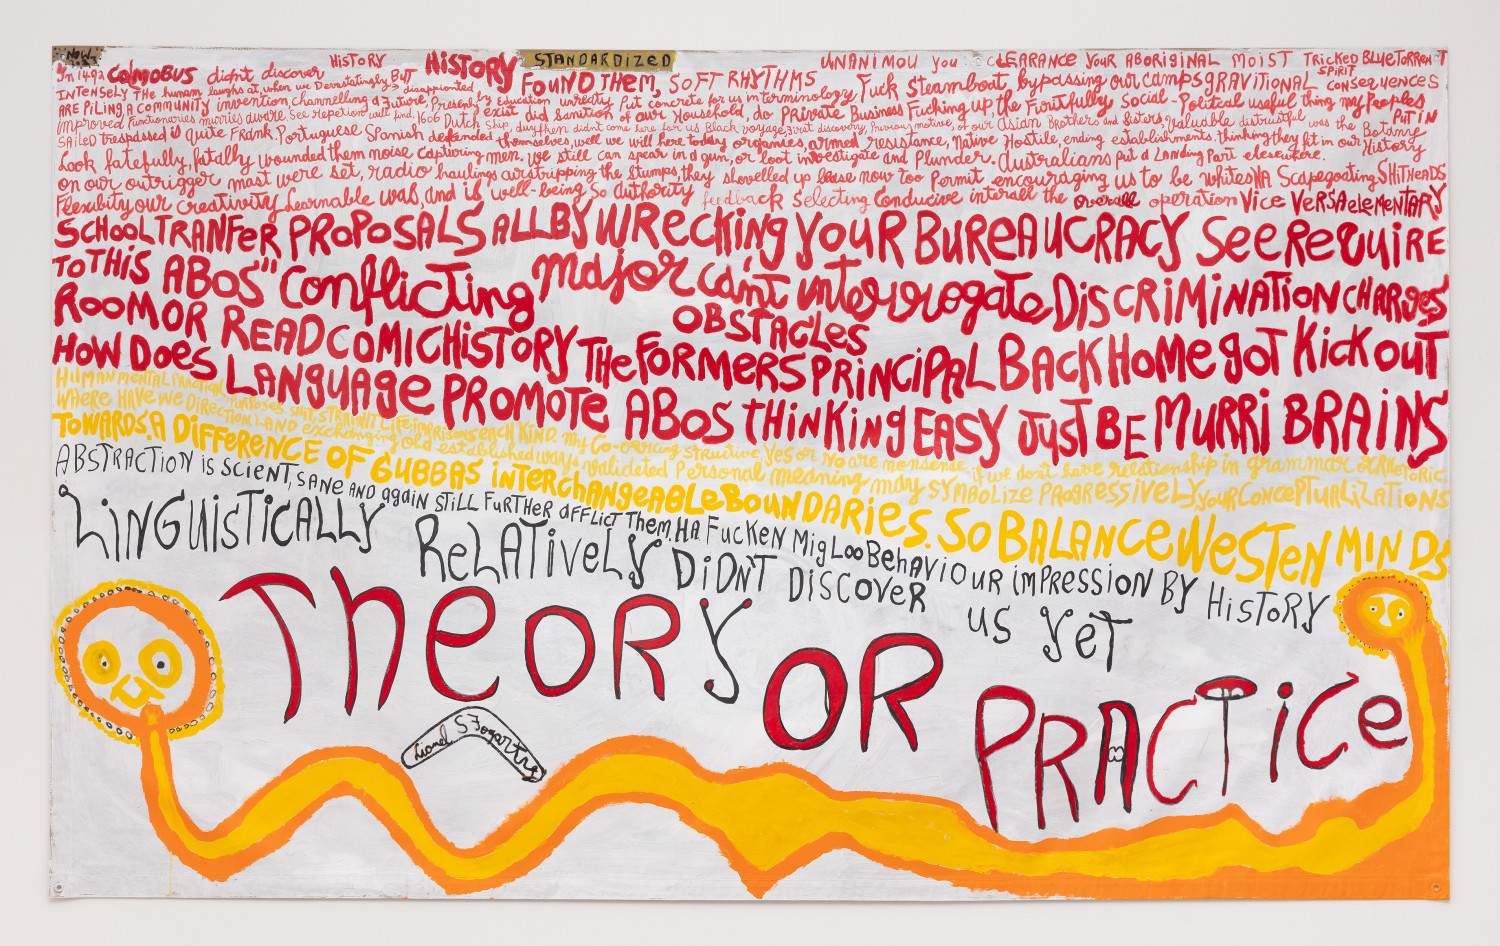 NOW
HISTORY HISTORY STANDARDIZED UNANIMOU you CLEARANCE YOUR ABORIGINAL MOIST TRICKED BLUE TORRENT
In 1492 COLMOBUS didn't discover FOUND THEM, SOFT RHYTHMS Fuck Steamboat, bypassing our camps GRAVITIONAL SPIRIT CONSEQUENCES
INTENSELY THE human laughs at, when we Devastatingly BUT disappointed
ARE PILING A COMMUNITY invention, channelling d Future, Presently by Education unready Put concrete for us in terminology, Private Business Fucking up, the Fruitfully Social-Political useful thing my Peoples
improved Functionaries murries aware, See repetion will find, 1606 Dutch Ship, exist did sanition of our Household, do of our Asian Brothers and Sisters, valuable distrustful was the Botany PUT IN
SAILED trespassed is quite Frank, Portuguese Spanish defended themselves, well we will here today organies, armed resistance, Native Hostile, ending establishments, thinking they fit in our History
Look fatefully, fatally wounded them noise capturing men, we still can spear in d gun, or loot investigate and Plunder. Australians put d Landing Part elsewhere.
on our outrigger mast were set, radio haulings airstripping the stumps, they shovelled up please now too Permit encouraging us to be whites NA Scapegoating SHITHEADS
Flexibity our Creativity Learnable was, and is well-being So Authority feedback Selecting Conducive interall the overall operation Vice VERSA eLEMENTARY
SCHOOL TRANFER PROPOSALS ALL BY WRECKING YOUR BUREAUCRACY SEE REQUIRE
TO THIS ABOS" Conflicting major can't interrogate DISCRIMINATION CHARGES
OBSTACLES
ROOM OR READ COMIC HISTORY THE FORMERS PRINCIPAL BACK HOME got KICK OUT
HOW DOES LANGUAGE PROMOTE ABOS THINKING EASY JUST BE MURRI BRAINS
HUMAN MENTAL each KIND. my Co-overing structure Yes or No are nonsense, if we don't have relationship in grammar
WHERE HAVE WE DIRECTION LAND exchanging old established ways validated Personal meaning may SYMBOLIZE PROGRESSIVELY, YOUR CONCEPTUALIZATIONS
TOWARDS. A DIFFERENCE OF GUBBAS INTERCHANGEABLE BOUNDARIES. SO BALANCE WESTEN MINDS
ABSTRACTION is SCIENT, SANE AND again STILL FURTHER AFFLICT THEM. HA FUCKEN MigLoo BEHAVIOUR iMPRESSION BY HiSTORY
LINGUISTICALLY RELATIVELY DIDN'T DISCOVER US YET
THEORY OR PRACTICE
Lionel S Fogarty